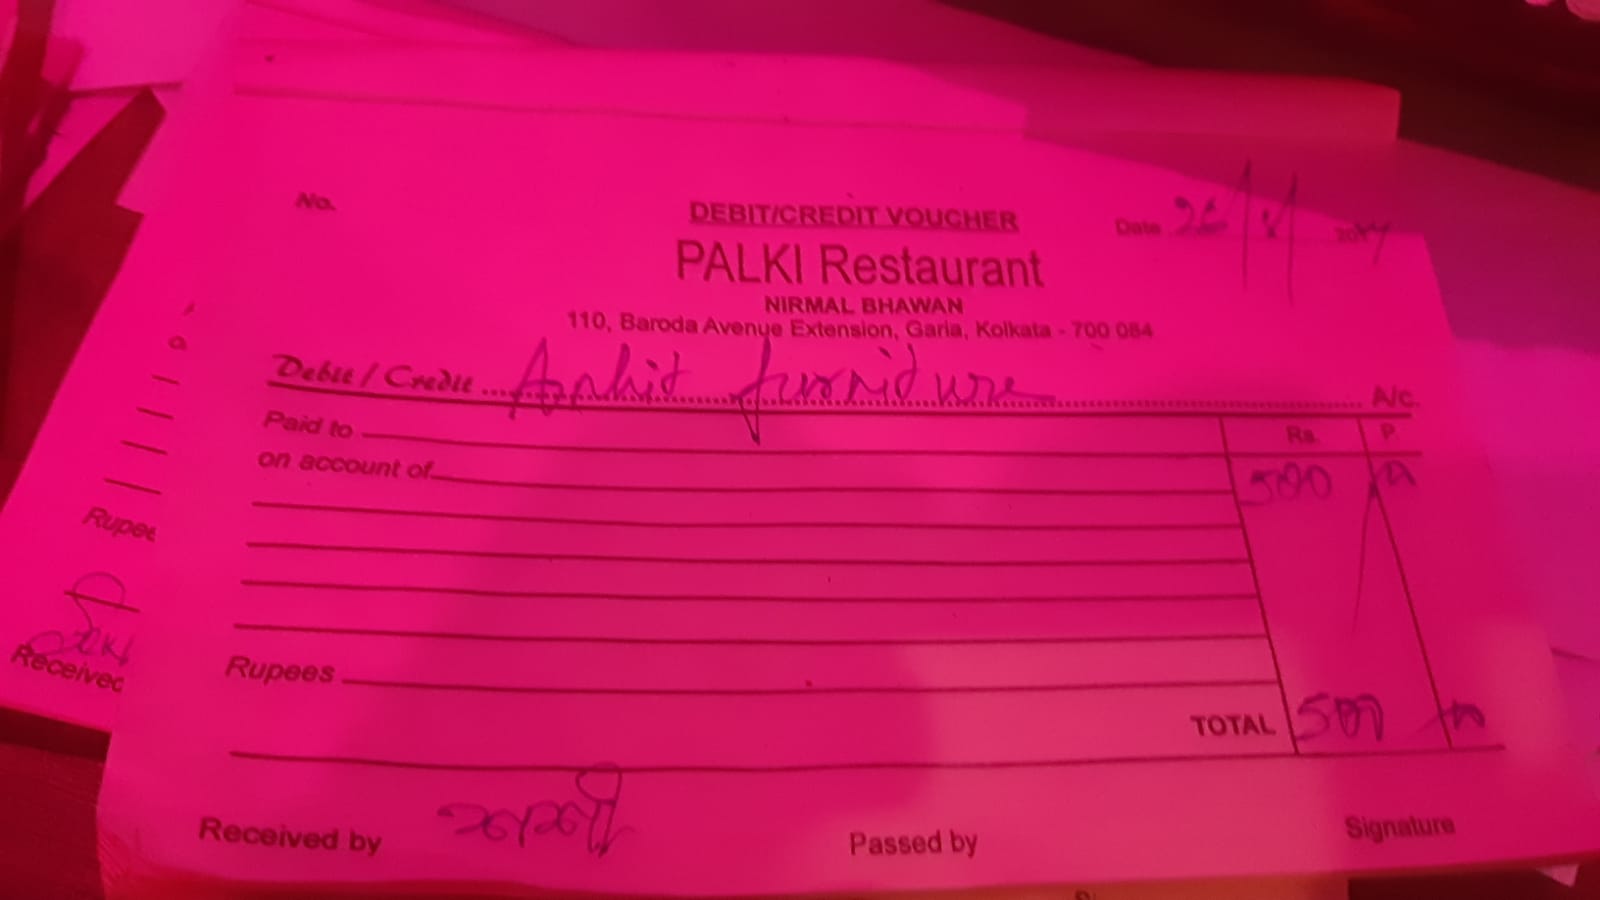 No.
DEBIT/CREDIT VOUCHER
Date 26/ / 20
PALKI Restaurant
NIRMAL BHAWAN
110, Baroda Avenue Extension, Garia, Kolkata - 700 084
Debit / Credit Ankit furniture A/c.
Paid to
Rs. P.
on account of
500
Rupees
TOTAL 500
Received by
Passed by
Signature
Rupee
Received